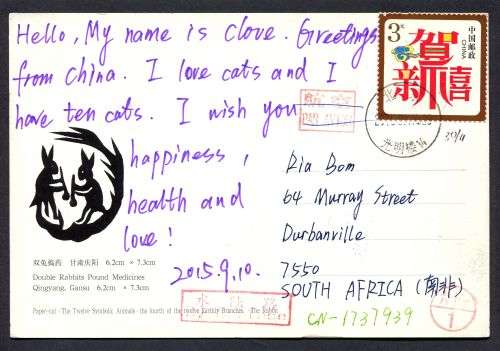 Hello, My name is Clove. Greetings
from China. I love cats and I
have ten cats. I wish you
happiness,
health and
love!
2015.9.10.
3元
中国邮政
CHINA
贺新禧
PAR AVION
Ria Bom
64 Murray Street
Durbanville
7550
SOUTH AFRICA (南非)
CN-1737939
双兔捣药 甘肃庆阳 6.2cm × 7.3cm
Double Rabbits Pound Medicines
Qingyang, Gansu 6.2cm × 7.3cm
Paper-cut · The Twelve Symbolic Animals · the fourth of the twelve Earthly Branches · The Rabbit
水陆路
1